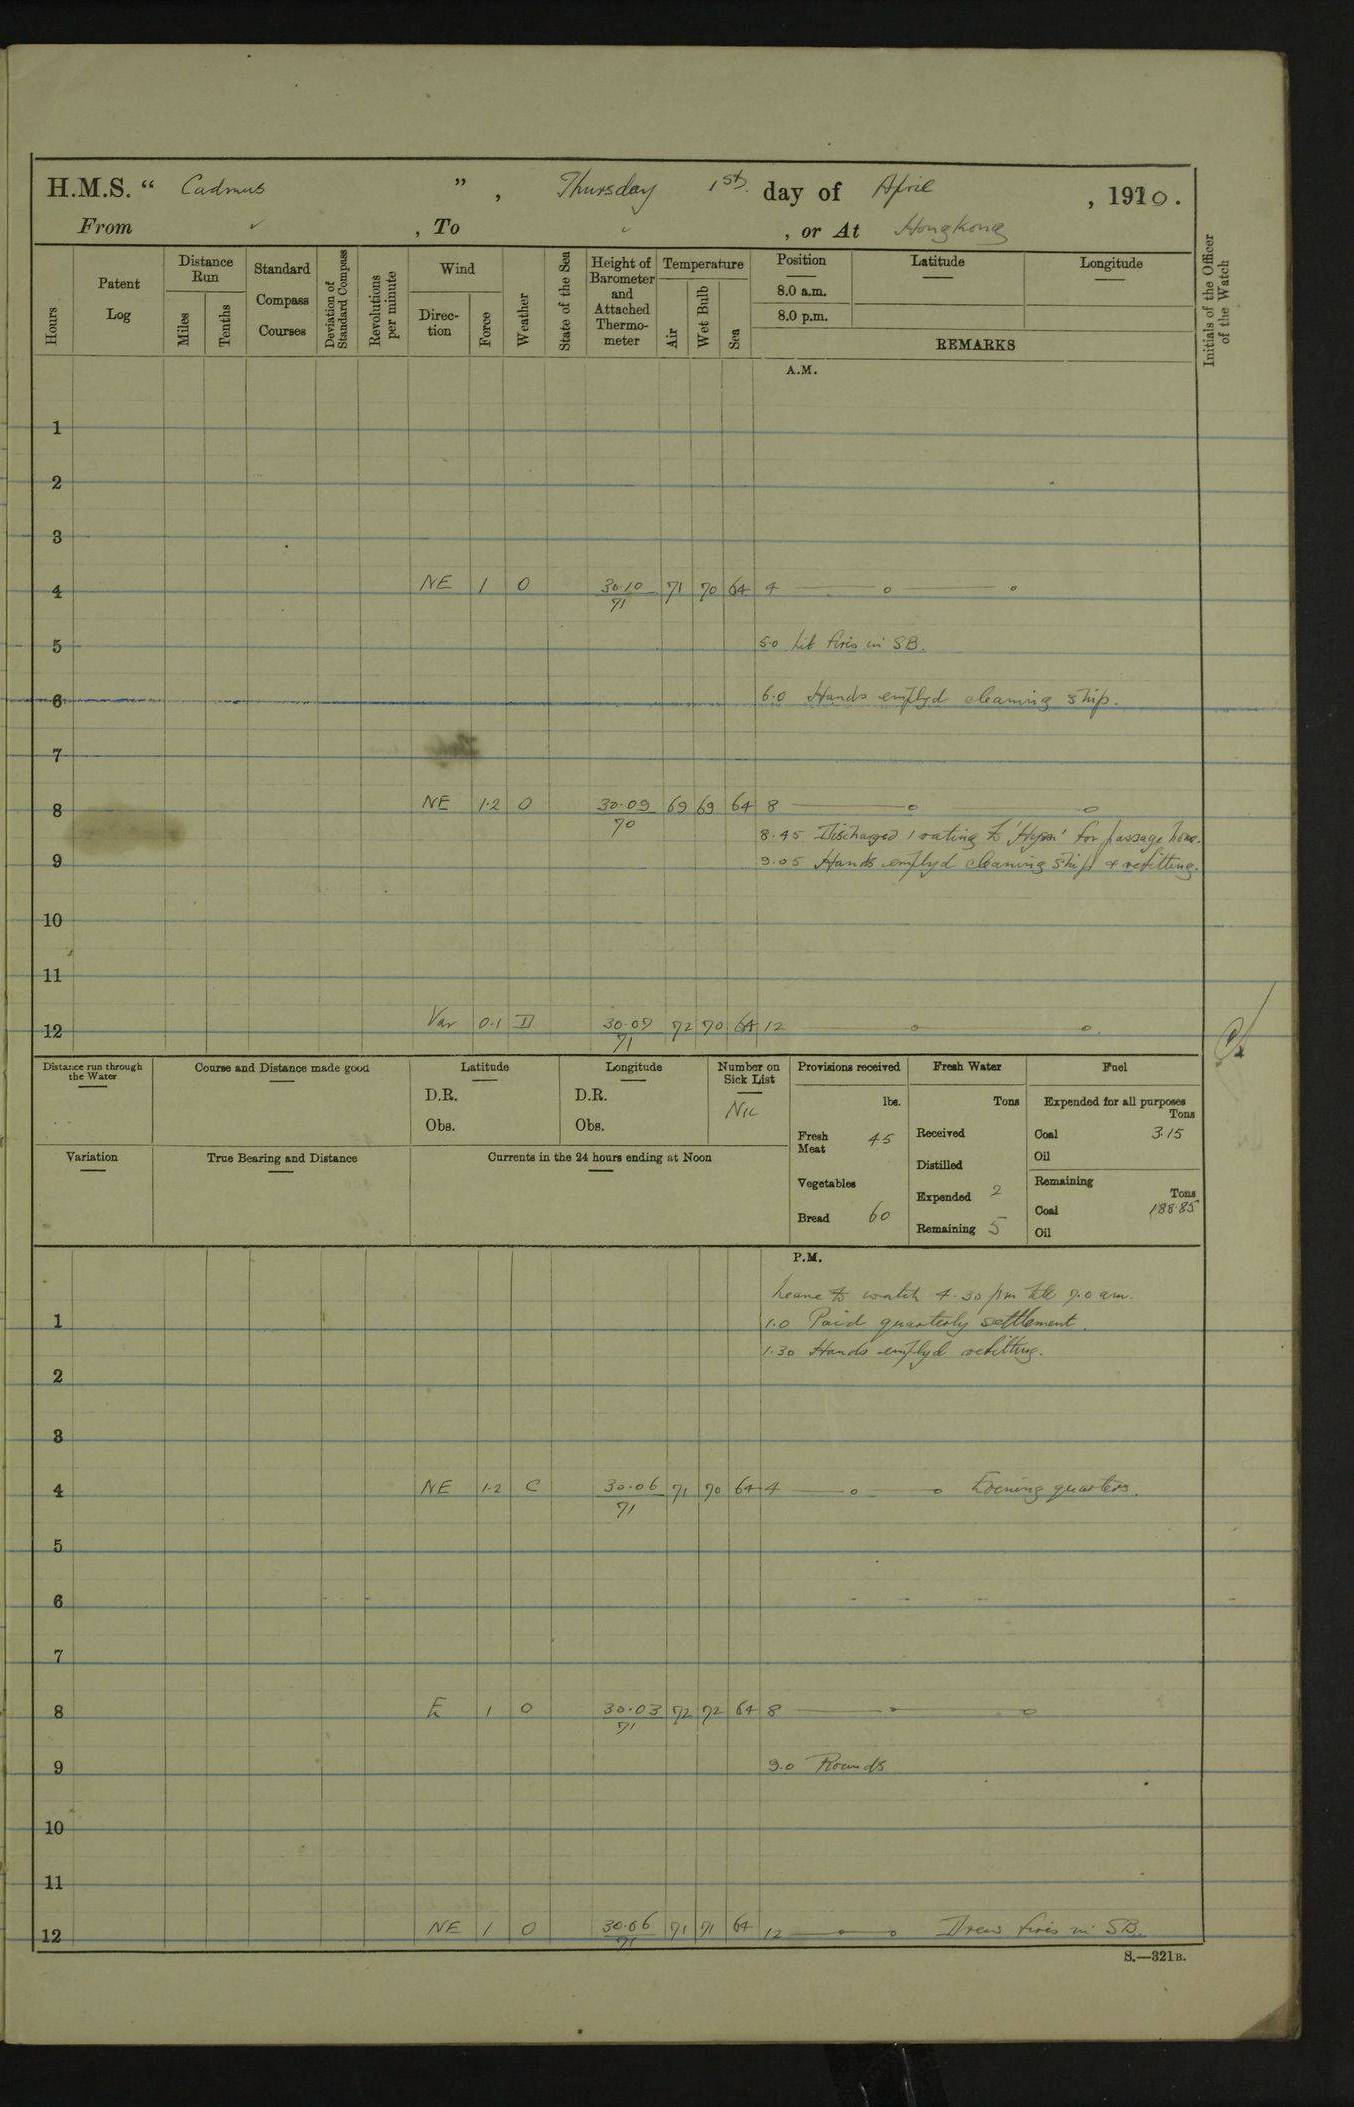 H.M.S. “ Cadmus ” , Thursday 1st day of April , 1910.
From ✓ , To ✓ , or At Hongkong
Hours
Patent Log
Distance Run
Miles
Tenths
Standard Compass Courses
Deviation of Standard Compass
Revolutions per minute
Wind
Direction
Force
Weather
State of the Sea
Height of Barometer and Attached Thermometer
Temperature
Air
Wet Bulb
Sea
Position
8.0 a.m.
8.0 p.m.
Latitude
Longitude
REMARKS
Initials of the Officer of the Watch
A.M.
1
2
3
4 NE 1 O 30.10 71 71 70 64 4 — o — o
5 5.0 Lit fires in SB.
6 6.0 Hands emplyd cleaning ship.
7
8 NE 1.2 O 30.09 70 69 69 64 8 — o o
8.45 Discharged 1 rating to for passage home.
9 9.05 Hands emplyd cleaning ship & refitting.
10
11
12 Var 0.1 D 30.07 71 72 70 64 12 o o
Distance run through the Water
Course and Distance made good
Latitude
D.R.
Obs.
Longitude
D.R.
Obs.
Number on Sick List
NIL
Variation
True Bearing and Distance
Currents in the 24 hours ending at Noon
Provisions received
lbs.
Fresh Meat 45
Vegetables
Bread 60
Fresh Water
Tons
Received
Distilled
Expended 2
Remaining 5
Fuel
Expended for all purposes
Tons
Coal 3.15
Oil
Remaining
Tons
Coal 188.85
Oil
P.M.
Leave to watch 4.30 pm till 7.0 am.
1 1.0 Paid quarterly settlement.
1.30 Hands emplyd refitting.
2
3
4 NE 1.2 C 30.06 71 71 70 64 4 — o — o Evening quarters.
5
6
7
8 E 1 O 30.03 71 72 72 64 8 — o — o
9 9.0 Rounds
10
11
12 NE 1 O 30.06 71 71 71 64 12 — o — o Drew fires in SB.
S.—321B.